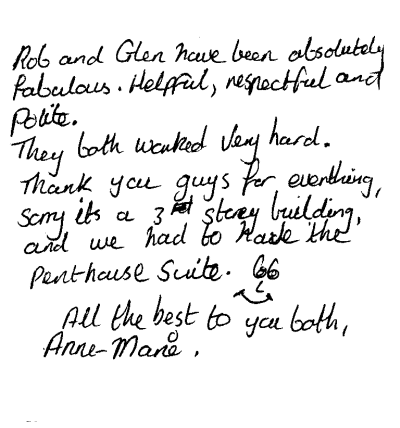 Rob and Glen have been absolutely
fabulous. Helpful, respectful and
Polite.
They both worked very hard.
Thank you guys for everthing,
Sorry its a 3 storey building,
and we had to have the
Penthouse Suite.
All the best to you both,
Anne-Marie.